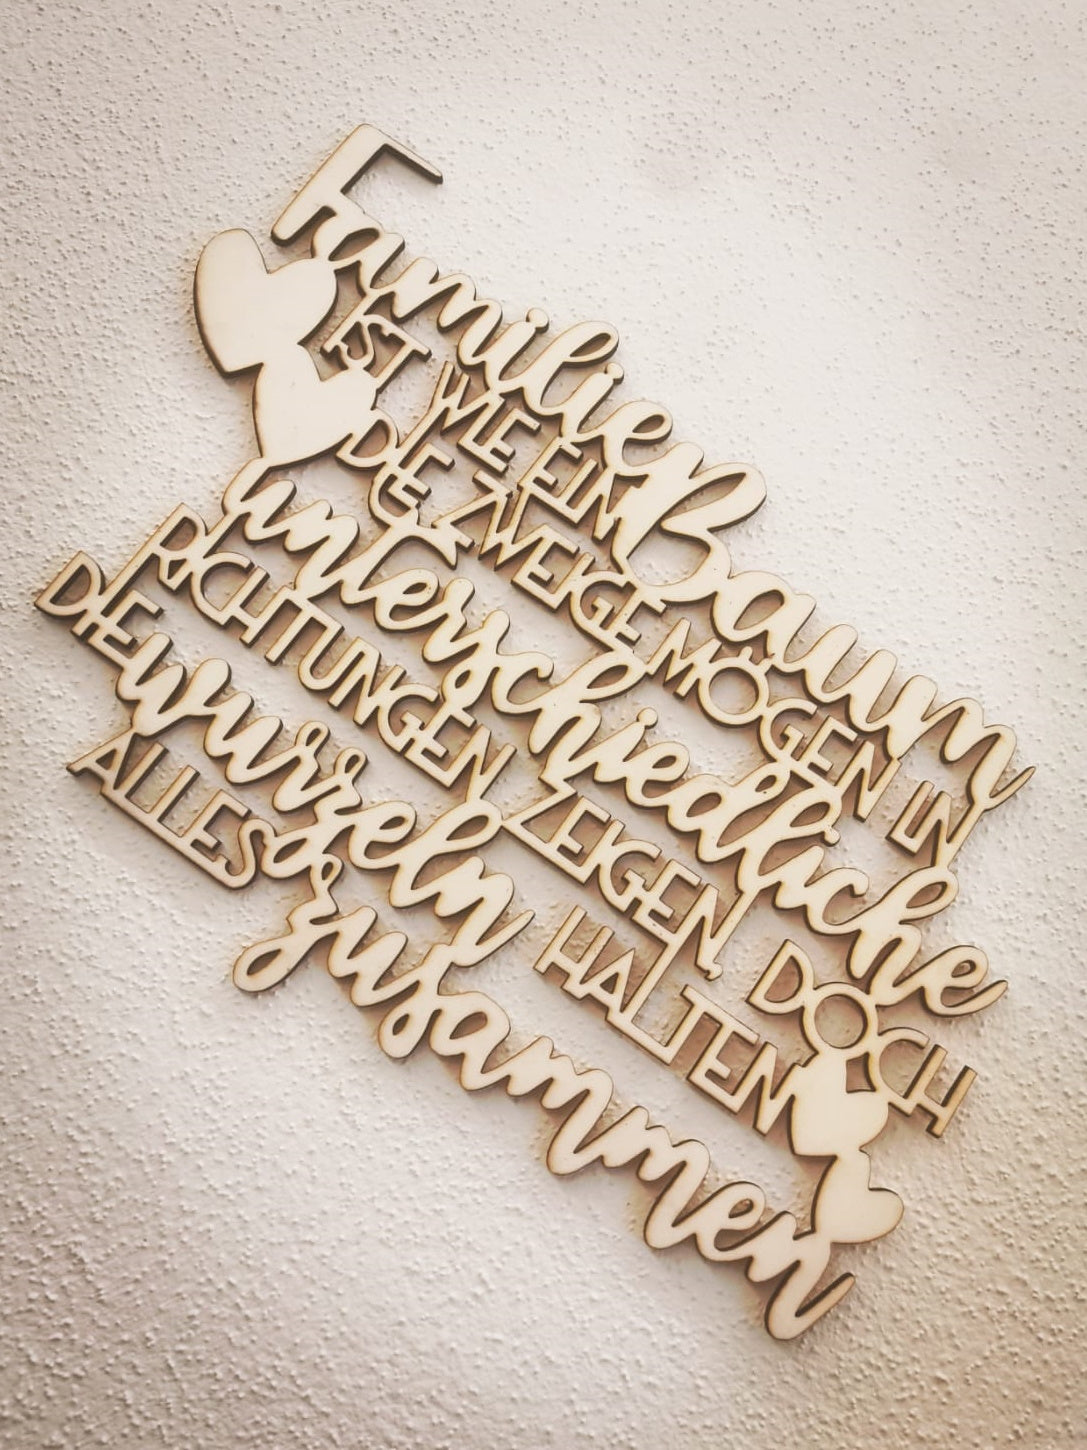 Familie
IST WIE EIN Baum
DIE ZWEIGE MÖGEN IN
unterschiedliche
RICHTUNGEN ZEIGEN, DOCH
DIE wurzeln HALTEN
ALLES zusammen